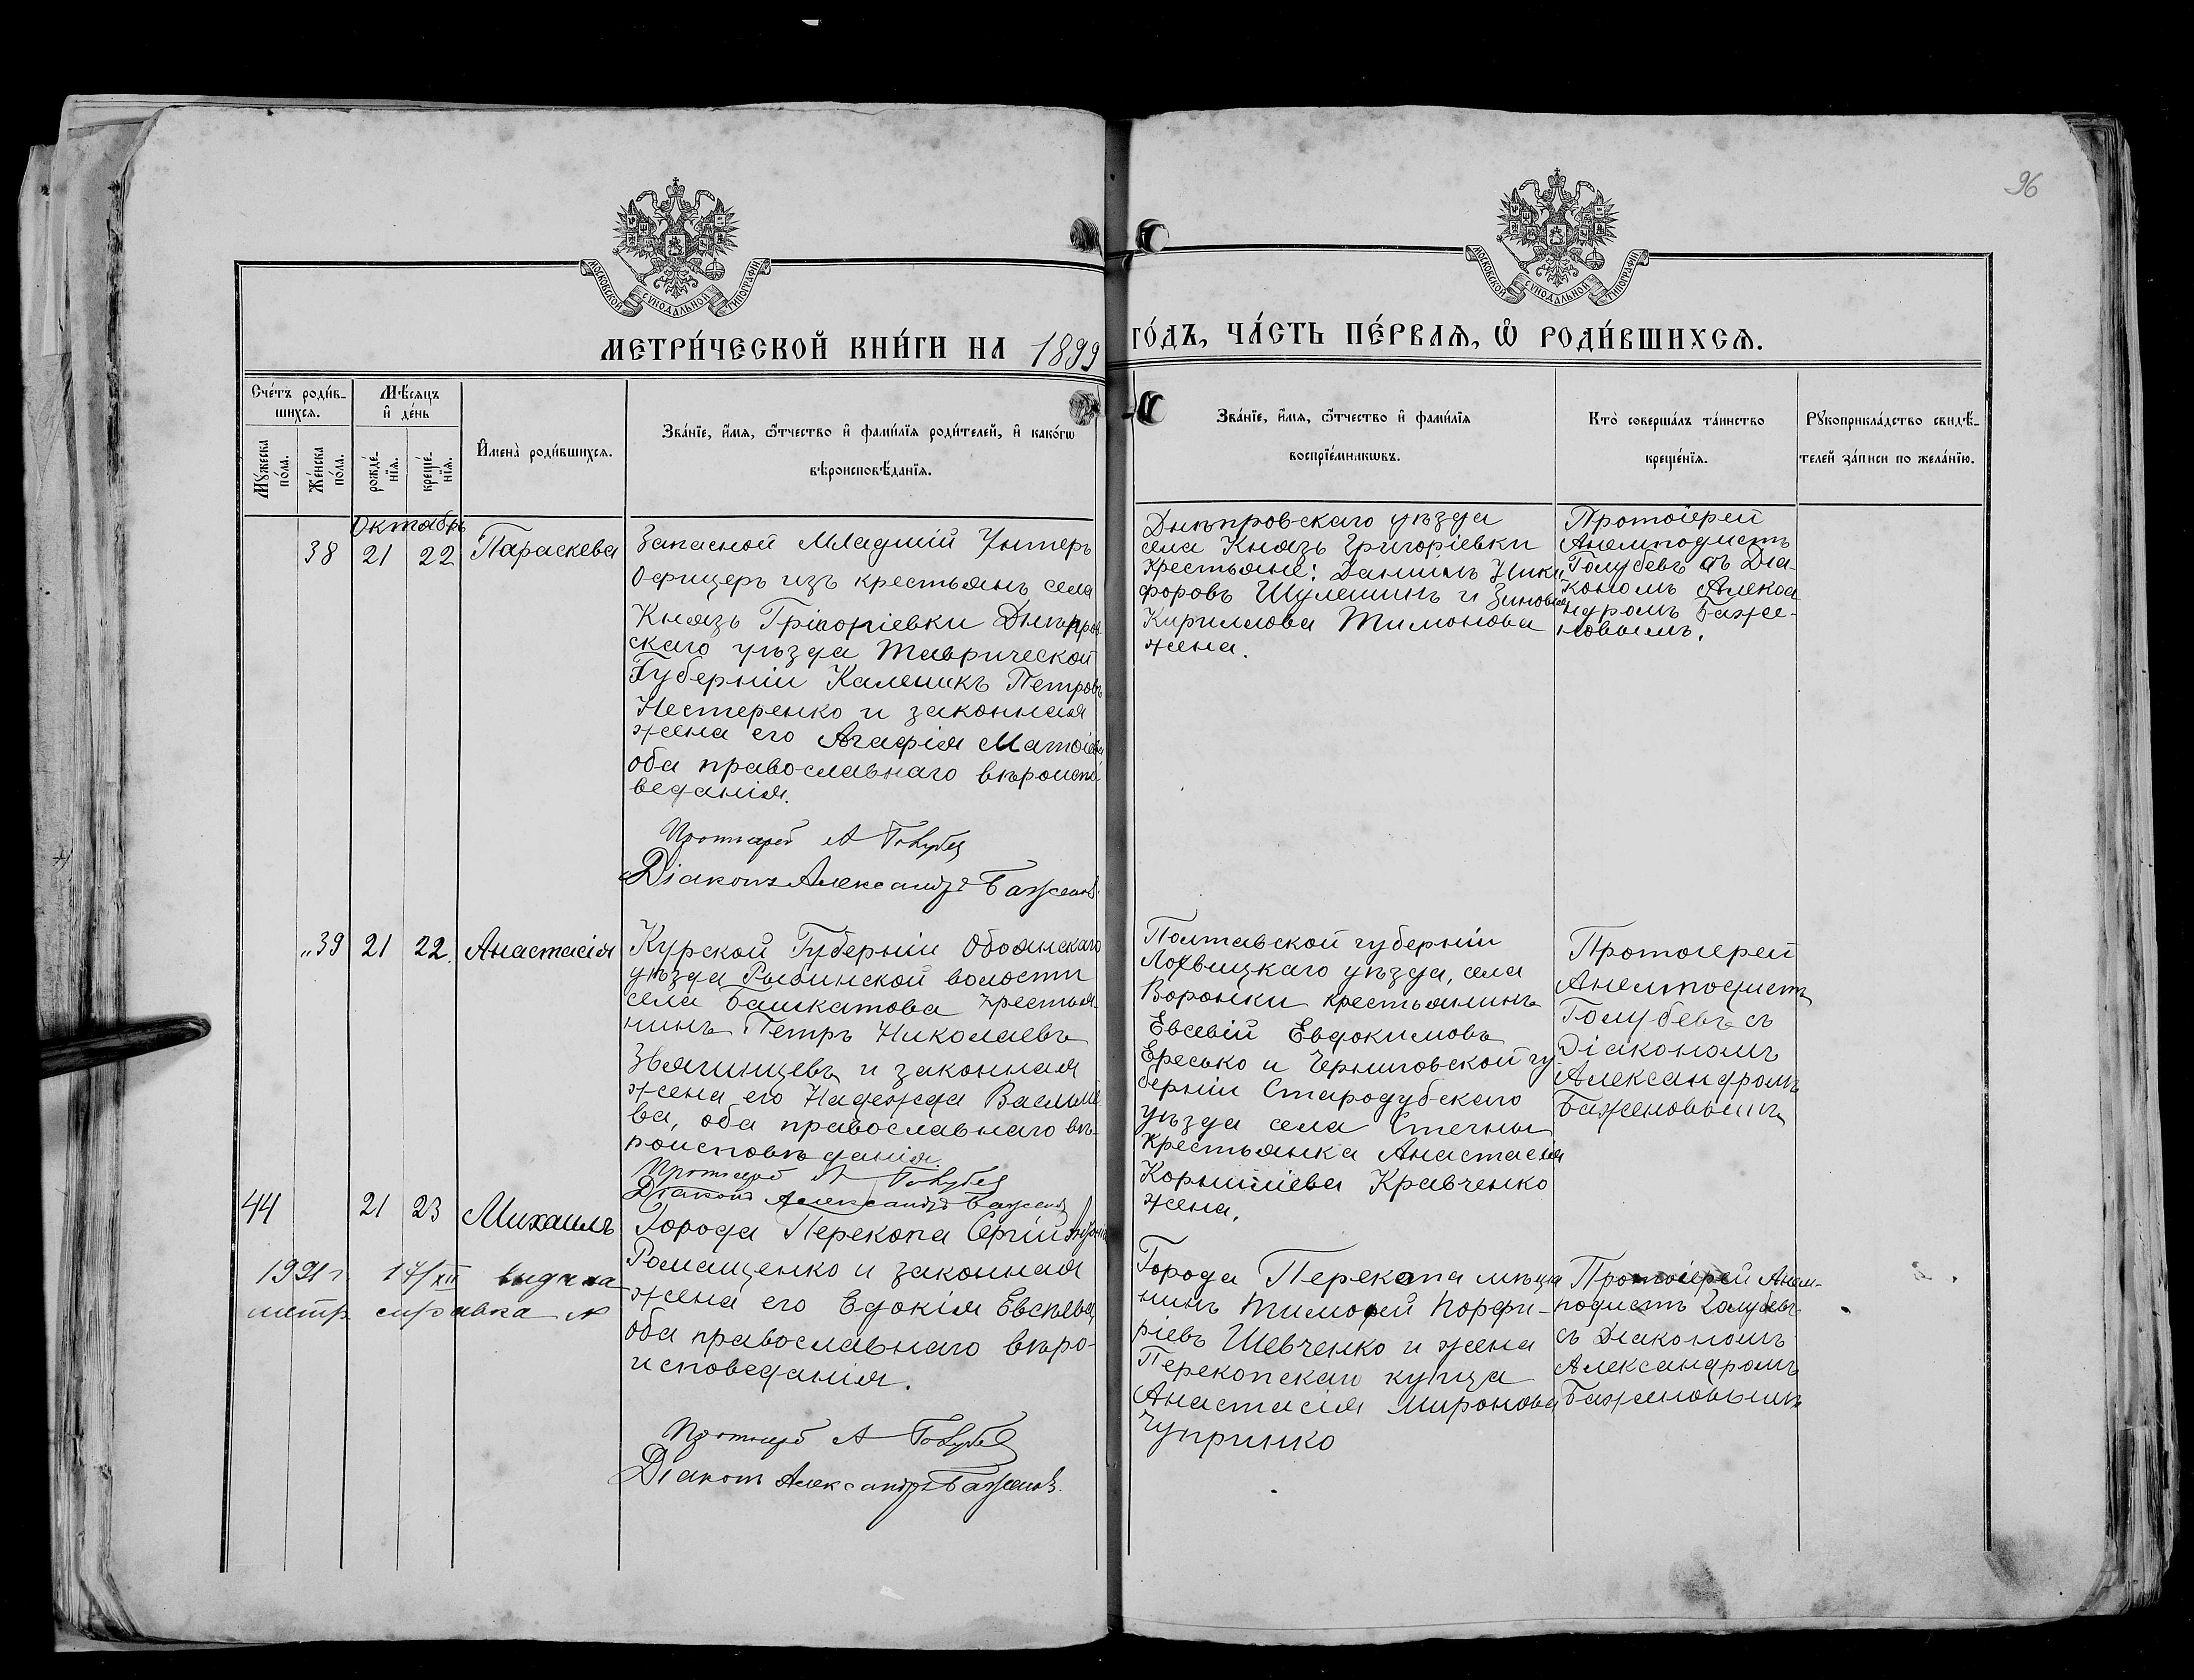 96
МОСКОВСКОЙ СУНОДАЛЬНОЙ ТИПОГРАФІИ
МОСКОВСКОЙ СУНОДАЛЬНОЙ ТИПОГРАФІИ
МЕТРИ́ЧЕСКОЙ КНИ́ГИ НА 1899 ГО́ДЪ, ЧА́СТЬ ПЕ́РВАѦ, Ѡ҆ РОДИ́ВШИХСѦ.
Сче́тъ роди́в-
шихсѧ.
Мꙋ́жеска по́ла.
Же́нска по́ла.
Мѣ́сѧцъ
и҆ де́нь
рожде́-нїѧ.
креще́-нїѧ.
И҆мена̀ роди́вшихсѧ.
Зва́нїе, и҆́мѧ, ѻ҆́тчество и҆ фами́лїѧ роди́телей, и҆ како́гѡ
вѣроисповѣ́данїѧ.
Зва́нїе, и҆́мѧ, ѻ҆́тчество и҆ фами́лїѧ
воспрїе́мникѡвъ.
Кто̀ соверша́лъ та́инство
креще́нїѧ.
Рꙋкоприкла́дство свидѣ́-
телей за́писи по жела́нїю.
Октябрь
38 21 22 Параскева
Запасной Младшій Унтеръ
Офицеръ изъ крестьянъ села
Князь Грігоріевки Днѣпров
скаго уѣзда Таврической
Губерніи Каленикъ Петровъ
Нестеренко и законная
жена его Агафія Матѳіева
оба православнаго вѣроиспо
веданія.
Протоіерей А Голубев
Діаконъ Александръ Баженов
Днѣпровскаго уѣзда
села Князь Григоріевки
Крестьяне: Даніилъ Ники
форовъ Шулешинъ и Зиновія
Кириллова Тимонова
жена.
Протоіерей
Анемподистъ
Голубевъ съ Діа-
кономъ Алекса
ндромъ Баже-
новымъ.
„39 21 22. Анастасія
Курской Губерніи Обоянскаго
уѣзда Рыбинской волости
села Башкатова крестья
нинъ Петръ Николаевъ
Звягинцевъ и законная
жена его Надежда Василіе
ва, оба православнаго вѣ-
роисповѣданія.
Протоіерей А Голубев
Діаконъ Александръ Баженов
Полтавской губерніи
Лохвицкаго уѣзда, села
Воронки крестьянинъ
Евсевій Евдокимовъ
Ересько и Черниговской гу
берніи Стародубскаго
уѣзда села
Крестьянка Анастасія
Корниліева Кравченко
жена.
Протоіерей
Анемподистъ
Голубевъ съ
Діакономъ
Александромъ
Баженовымъ
44 21 23 Михаилъ
1991 г. 17/XII выдана
метр. справка №
Города Перекопа Сергій
Ромащенко и законная
жена его Едокія Евсѣева
оба православнаго вѣро-
исповеданія.
Протоіерей А Голубев
Діаконъ Александръ Баженов.
Города Перекопа мѣща
нинъ Тимофей Порфи-
ріевъ Шевченко и жена
Перекопскаго купца
Анастасія Миронова
Чупринко
Протоіерей Анем-
подистъ Голубевъ
съ Діакономъ
Александромъ
Баженовымъ